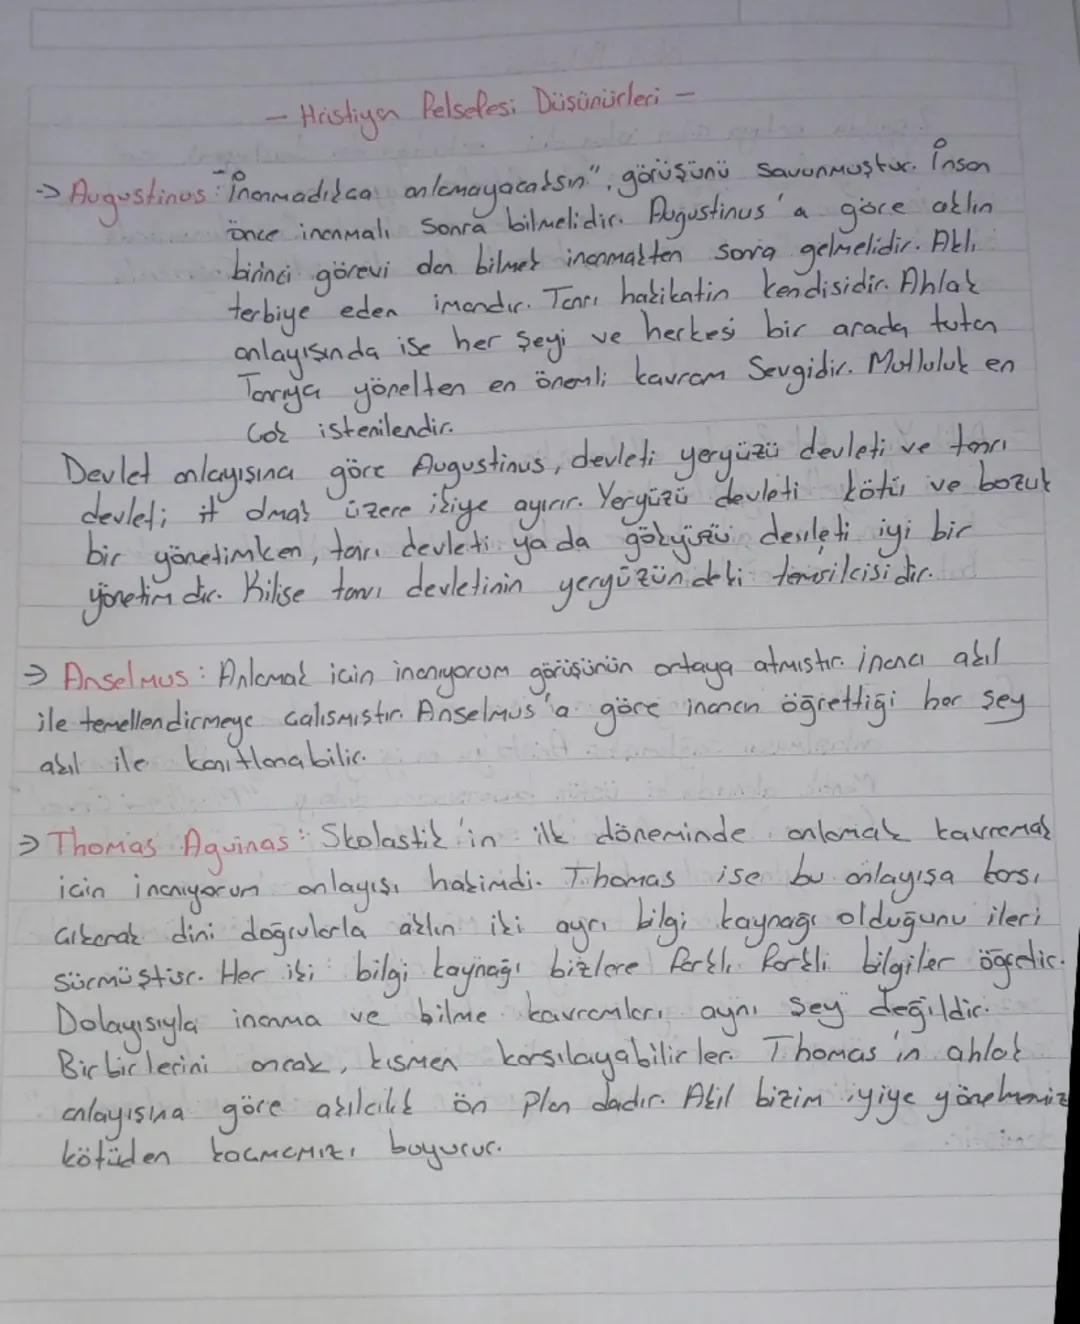 - Hristiyan Felsefesi Düşünürleri -
-> Augustinus: "İnanmadıkça anlamayacaksın", görüşünü savunmuştur. İnsan
önce inanmalı sonra bilmelidir. Augustinus'a göre aklın
birinci görevi dan bilmek inanmakten sonra gelmelidir. Aklı
terbiye eden imandır. Tanrı hakikatin kendisidir. Ahlak
anlayışında ise her şeyi ve herkesi bir arada tutan
Tanrıya yönelten en önemli kavram Sevgidir. Mutluluk en
çok istenilendir.
Devlet anlayışına göre Augustinus, devleti yeryüzü devleti ve tanrı
devleti; olmak üzere ikiye ayırır. Yeryüzü devleti kötü ve bozuk
bir yönetimken, tanrı devleti ya da gökyüzü devleti iyi bir
yönetim dir. Kilise tanrı devletinin yeryüzün deki temsilcisi dir.
-> Anselmus: Anlamak için inanıyorum görüşünün ortaya atmıştır. inancı akıl
ile temellendirmeye çalışmıştır. Anselmus'a göre inancın öğrettiği her şey
akıl ile kanıtlanabilir.
-> Thomas Aquinas: Skolastik'in ilk döneminde anlamak kavramak
için inanıyorum anlayışı hakimdi. Thomas ise bu anlayışa karşı
çıkarak dini doğrularla aklın iki ayrı bilgi kaynağı olduğunu ileri
sürmüştür. Her iki bilgi kaynağı bizlere farklı farklı bilgiler öğretir.
Dolayısıyla inanma ve bilme kavramları aynı şey değildir.
Birbirlerini ancak, kısmen karşılayabilirler. Thomas'ın ahlak
anlayışına göre akılcılık ön plan dadır. Akil bizim iyiye yönelmemiz
kötüden kaçmamızı buyurur.